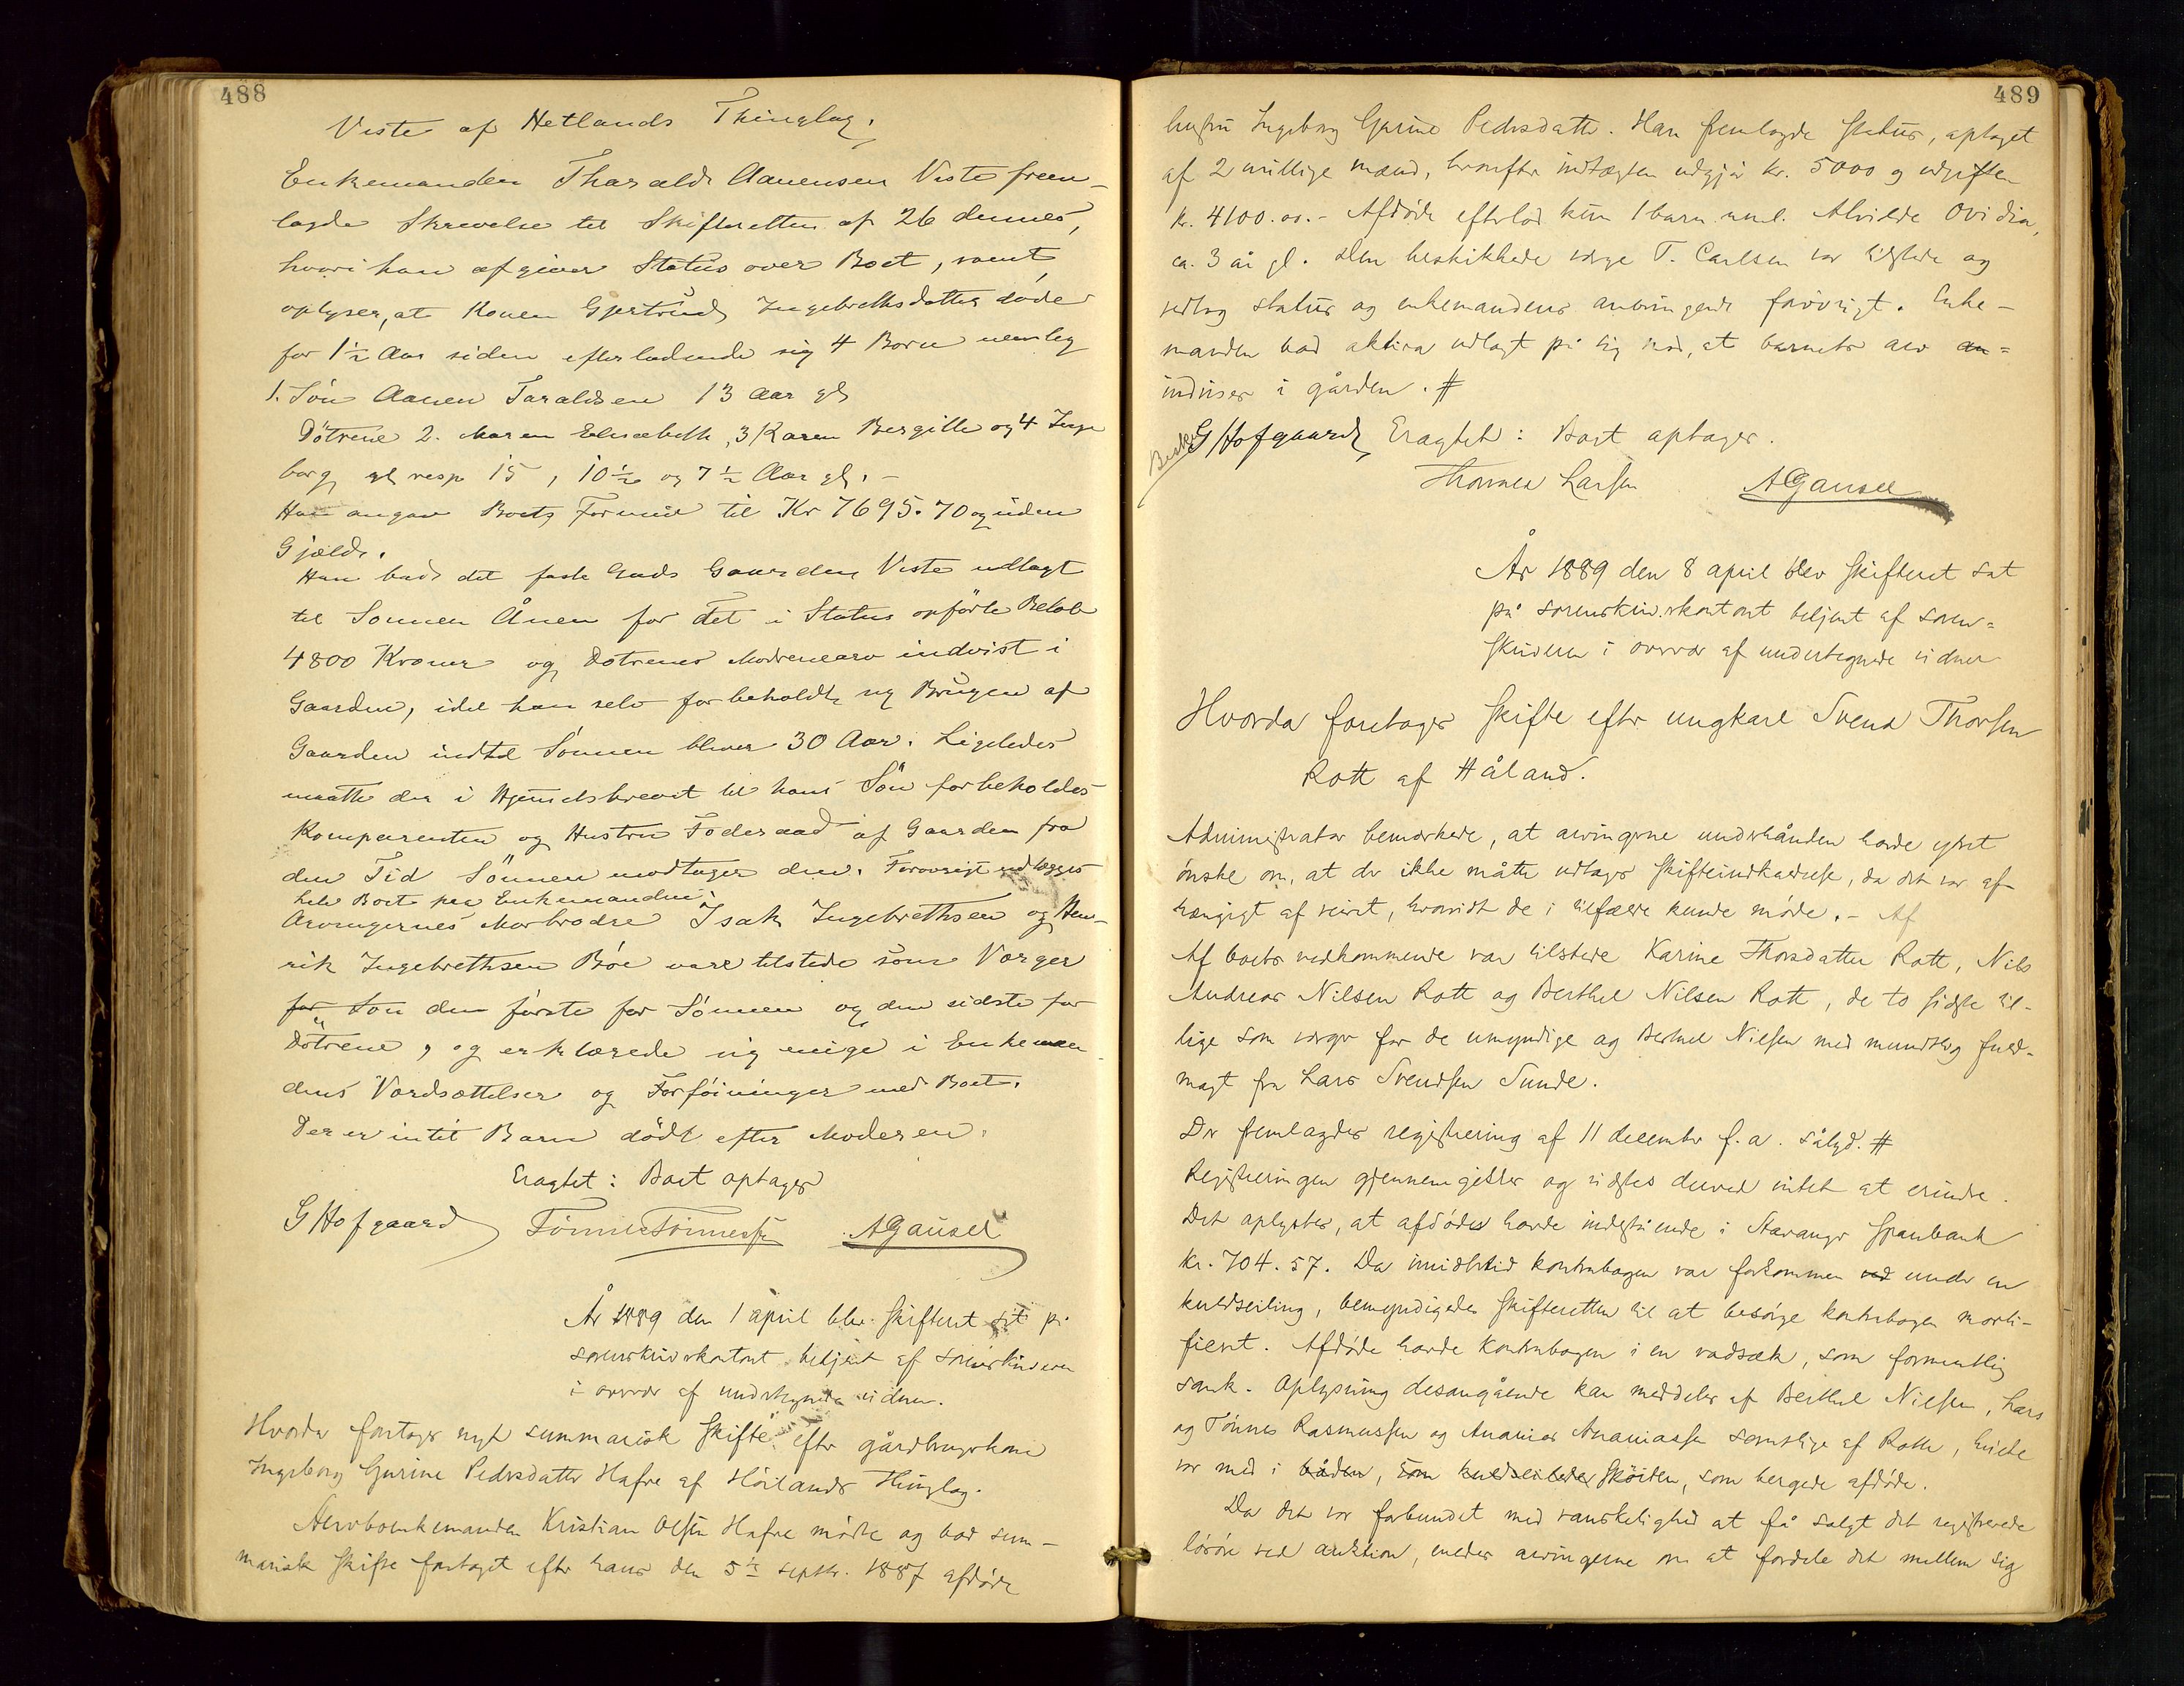 488
Viste af Hetlands Thinglag.
Enkemanden Tharald Aanensen Viste frem-
lagde Skrivelse til Skifteretten af 26 dennes,
hvori han afgiver Status over Boet, samt
oplyser, at Konen Gjertrud Ingebrethsdatter døde
for 1½ Aar siden efterladende sig 4 Børn nemlig
1. Søn Aanen Taraldsen 13 Aar gl
Døtrene 2. Maren Elisabeth, 3 Karen Bergitte og 4 Inge
borg gl resp 15, 10½ og 7½ Aar gl. -
Han angav Boets Formue til Kr 7695.70 og uden
Gjæld.
Han bad det faste Gods Gaarden Viste udlagt
til Sønnen Ånen for det i Status opførte Beløb
4800 Kroner og Døtrenes Mødrenearv indvist i
Gaarden, idet han selv forbeholdt sig Brugen af
Gaarden indtil Sønnen bliver 30 Aar. Ligeledes
maatte der i Hjemelsbrevet til hans Søn forbeholdes
Komparenten og Hustru Føderaad af Gaarden fra
den Tid Sønnen modtager den. Forøvrigt udlægges
hele Boet paa Enkemanden.
Arvingernes Morbrødre Isak Ingebrethsen og Hen-
rik Ingebrethsen Bøe vare tilstede som Værger
for Søn den første for Sønnen og den sidste for
Døtrene, og erklærede sig enige i Enkeman
dens Værdsættelser og Forføininger med Boet.
Der er intet Barn dødt efter Moderen.
Eragtet: Boet optages
G Hofgaard Tønnes Tønnessen A Gausel
År 1889 den 1 april blev skifteret sat på
sorenskriverkontoret betjent af sorenskriveren
i overvær af undertegnede vidner.
Hvorda foretages nyt summarisk skifte efter gårdbrugerkone
Ingeborg Gurine Pedersdatter Hafre af Høilands thinglag.
Kristian Olsen Hafre mødte og bad sum-
marisk skifte foretaget efter hans den 5te septbr. 1887 afdøde
489
hustru Ingeborg Gurine Pedersdatter. Han fremlagde status, optaget
af 2 uvillige mænd, hvorefter indtægten udgjør kr. 5000 og udgiften
kr. 4100.00.- Afdøde efterlod kun 1 barn naml. Alvilde Ovidia,
ca. 3 år gl. Den beskikkede værge T. Carlsen var tilstede og
vedtog status og enkemandens anbringende forøvrigt. Enke-
manden bad aktiva udlagt på sig mod, at barnets arv an=
indvises i gården. #
G Hofgaard, Eragtet: Boet optages.
Thomas Larsen A Gausel
År 1889 den 8 april blev skifteret sat
på sorenskriv.kontoret betjent af soren=
skriveren i overvær af undertegnede vidner
Hvorda foretages skifte efter ungkarl Svend Thorsen
Rott af Håland.
Administrator bemærkede, at arvingerne underhånden havde ytret
ønske om, at der ikke måtte udtages skifteindkaldelse, da det var af-
hængigt af veiret, hvorvidt de i tilfælde kunde møde. - Af
Af boets vedkommende var tilstede Karine Thorsdatter Rott, Nils
Andreas Nilsen Rott og Berthel Nilsen Rott, de to sidste til-
lige som værger for de umyndige og Berthel Nielsen med mundtlig fuld-
magt fra Lars Svendsen Sunde.
Der fremlagdes registrering af 11 december f.a. sålyd. #
Registreringen gjennemgikkes og vidstes derved intet at erindre.
Det oplystes, at afdøde havde indestående i Stavanger Sparebank
kr. 704.57. Da imidlertid kontrabogen var forkommen ved under en
kuldseiling, bemyndigedes skifteretten til at besørge kontrabogen morti-
ficeret. Afdøde havde kontrabogen i en vadsæk, som formentlig
sank. Oplysning desangående kan meddeles af Berthel Nielsen, Lars
og Tønnes Rasmussen og Ananias Ananiassen samtlige af Rott, hvilke
var med i båden, som kuldseilede skøiten, som bergede afdøde.
Da det var forbundet med vanskelighed at få solgt det registrerede
løsøre ved auktion, enedes arvingerne om at fordele det mellem sig